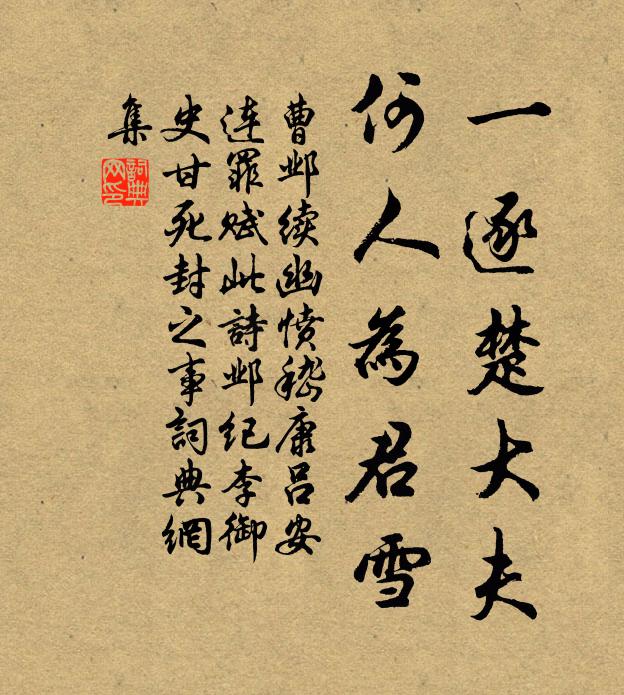 一逐楚大夫
何人為君雪
曹邺续幽愤嵇康吕安
连罪赋此詩邺纪李御
史甘死封之事詞典網
集
詞典
网印